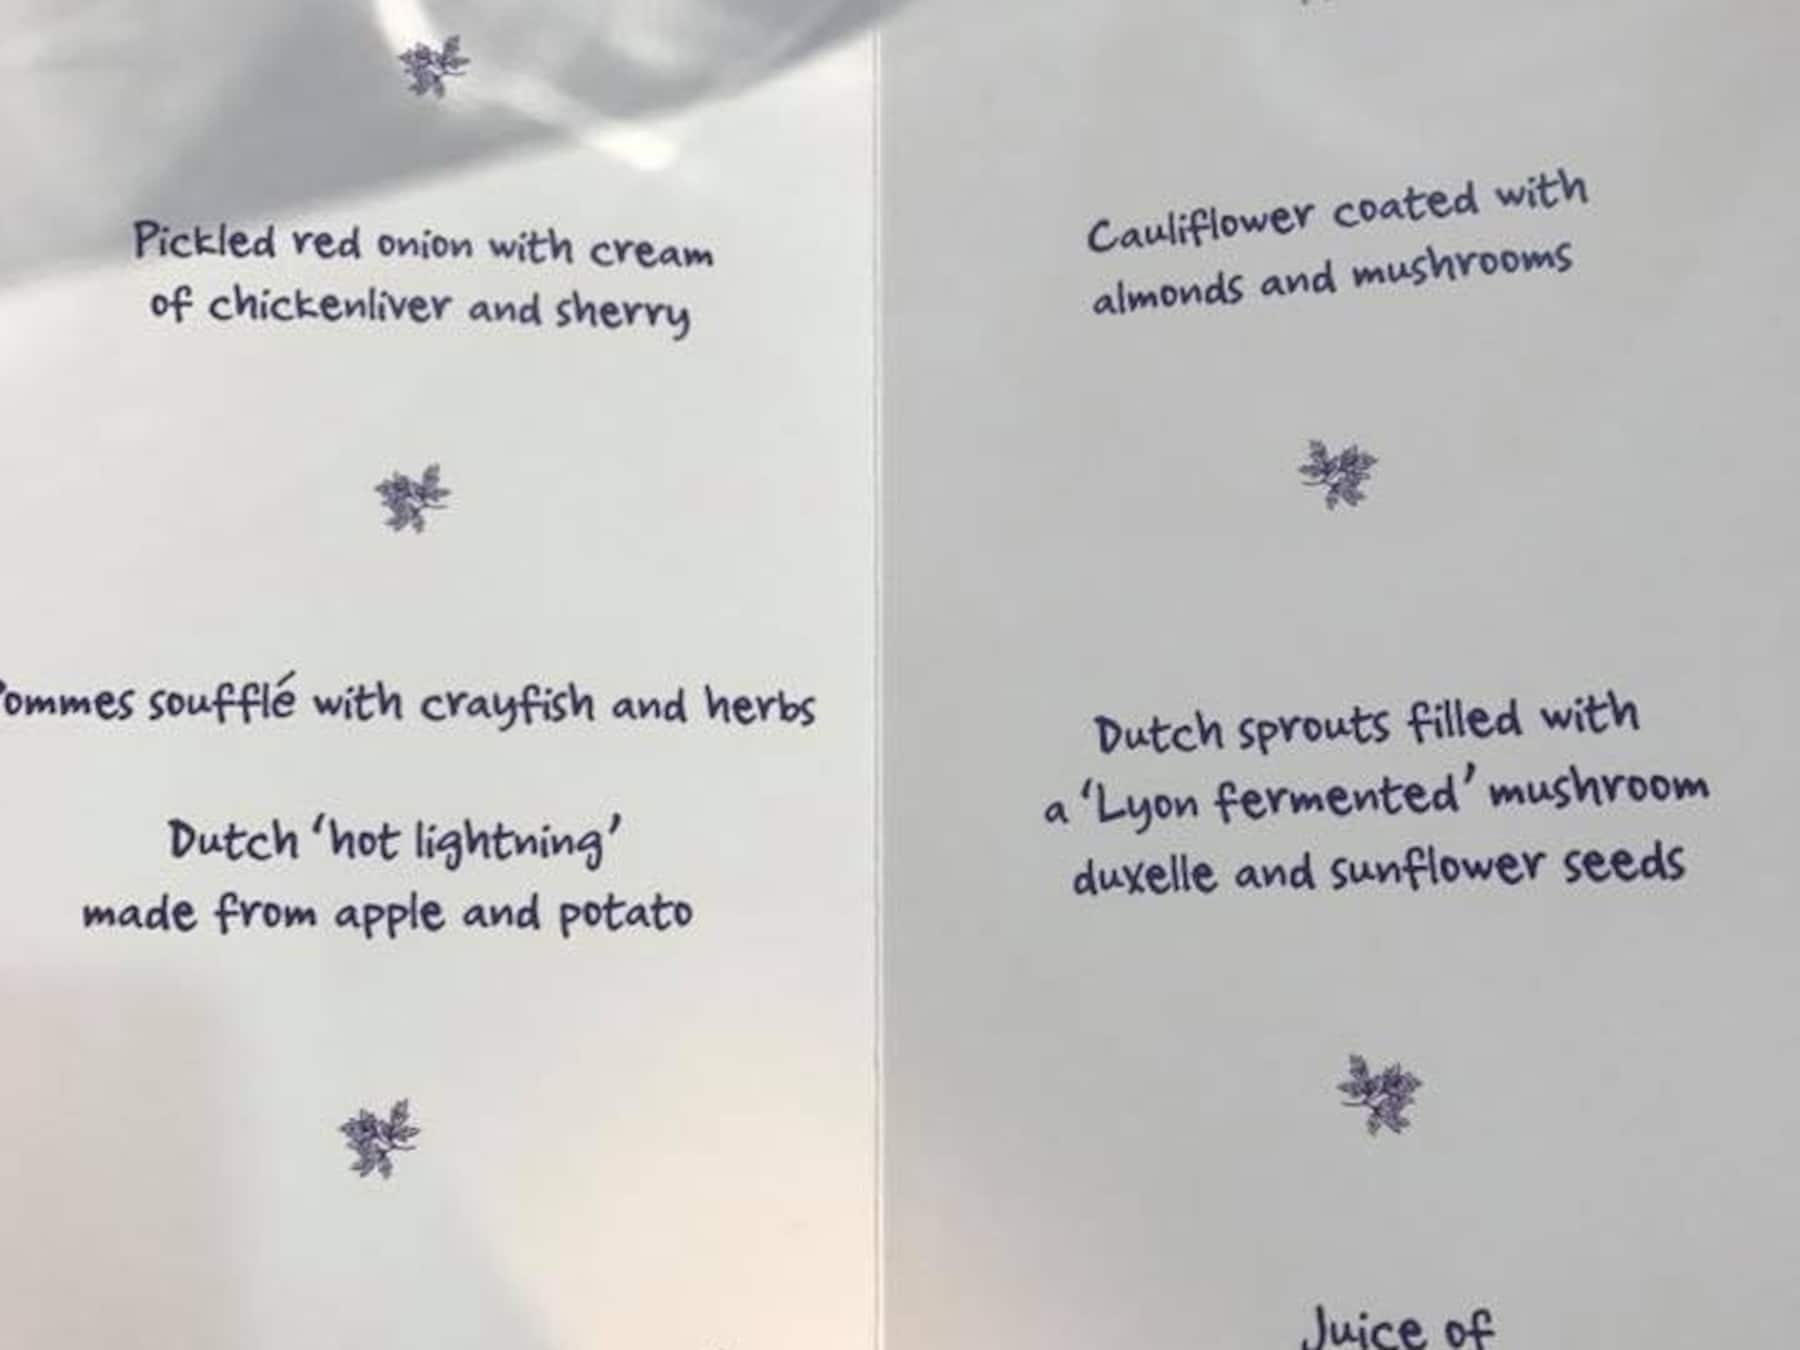 Pickled red onion with cream
of chickenliver and sherry
ommes soufflé with crayfish and herbs
Dutch ‘hot lightning’
made from apple and potato
Cauliflower coated with
almonds and mushrooms
Dutch sprouts filled with
a ‘Lyon fermented’ mushroom
duxelle and sunflower seeds
Juice of